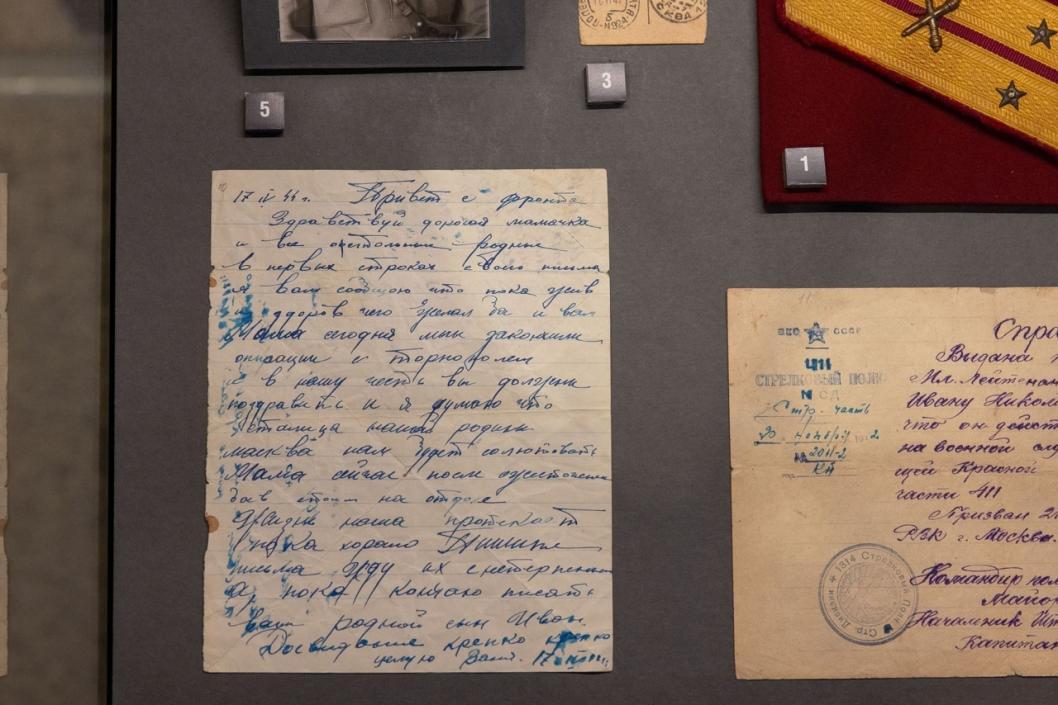 5
3
1
17 IV 44 г. Привет с фронта
Здравствуй дорогая мамачка
и вся остольные родные
в первых строках своего письма
я вам сообщаю что пока жив
и здоров чего желал бы и вам
Мама сегодня мы закончили
с Торнополем
и в нашу честь вы должны
поздравить и я думаю что
столица нашей родины
масква нам будет солютовать
Мама сейчас после
боев стоим на отдыхе
Жизнь наша протекает
пока хорошо Пишите
письма Жду их с нетерпением
А пока кончаю писать
ваш родной сын Иван
Досвидание крепко крепко
целую Вас. 17
ВКС СССР
411
СТРЕЛКОВЫЙ ПОЛК
Стр. часть
20 ноября
№ 2011-2
Спра
Выдана
Мл. Лейтена
Ивану Никола
что он дейст
на военной сл
щей Красной
части 411
Призван 2
РВК г. Москва.
Командир пол
Майо
Начальник Шт
Капитан
1314 Стрелковый Полк
Стр. Дивизии